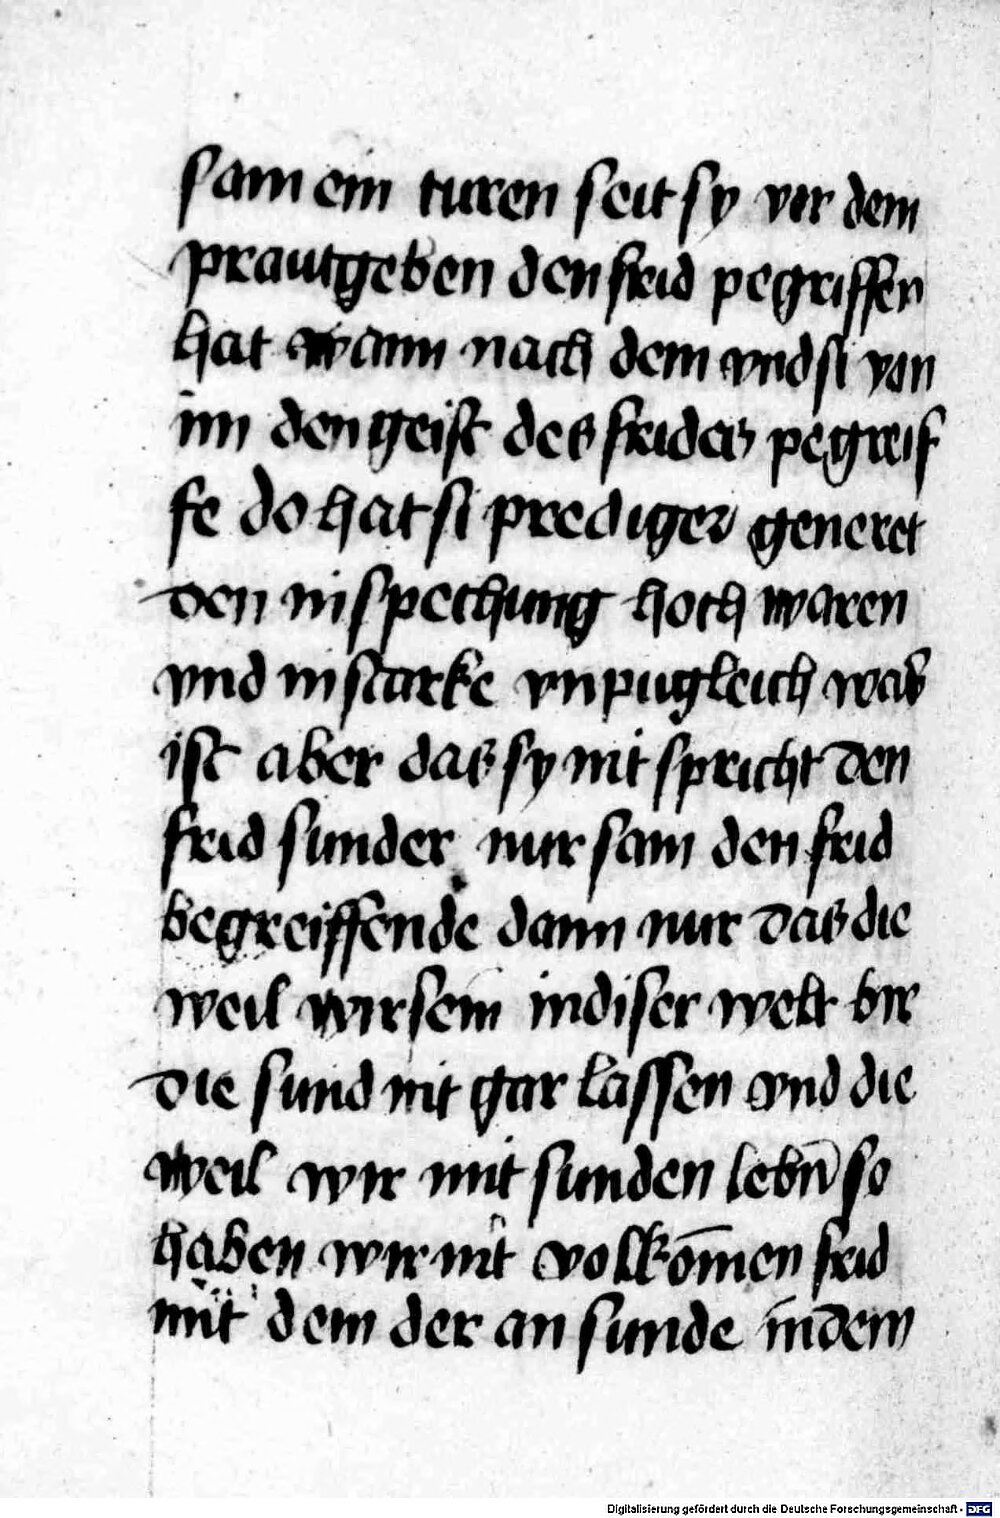 sam ein turen seit sy vor dem
prautgeben den frid pegriffen
hat wann nach dem vnd si von
im den geist des frides pegreif
fe do hat si prediger generet
den in spechung hoch waren
vnd in starke vnpugleich was
ist aber das sy nit spricht den
frid sunder nur sam den frid
begreiffende dann nur das die
weil wir sein in diser welt bir
die sund nit gar lassen vnd die
weil wir mit sunden lebn̄ so
haben wir nit volkom̄en frid
mit dem der an sunde in dem
Digitalisierung gefördert durch die Deutsche Forschungsgemeinschaft - DFG